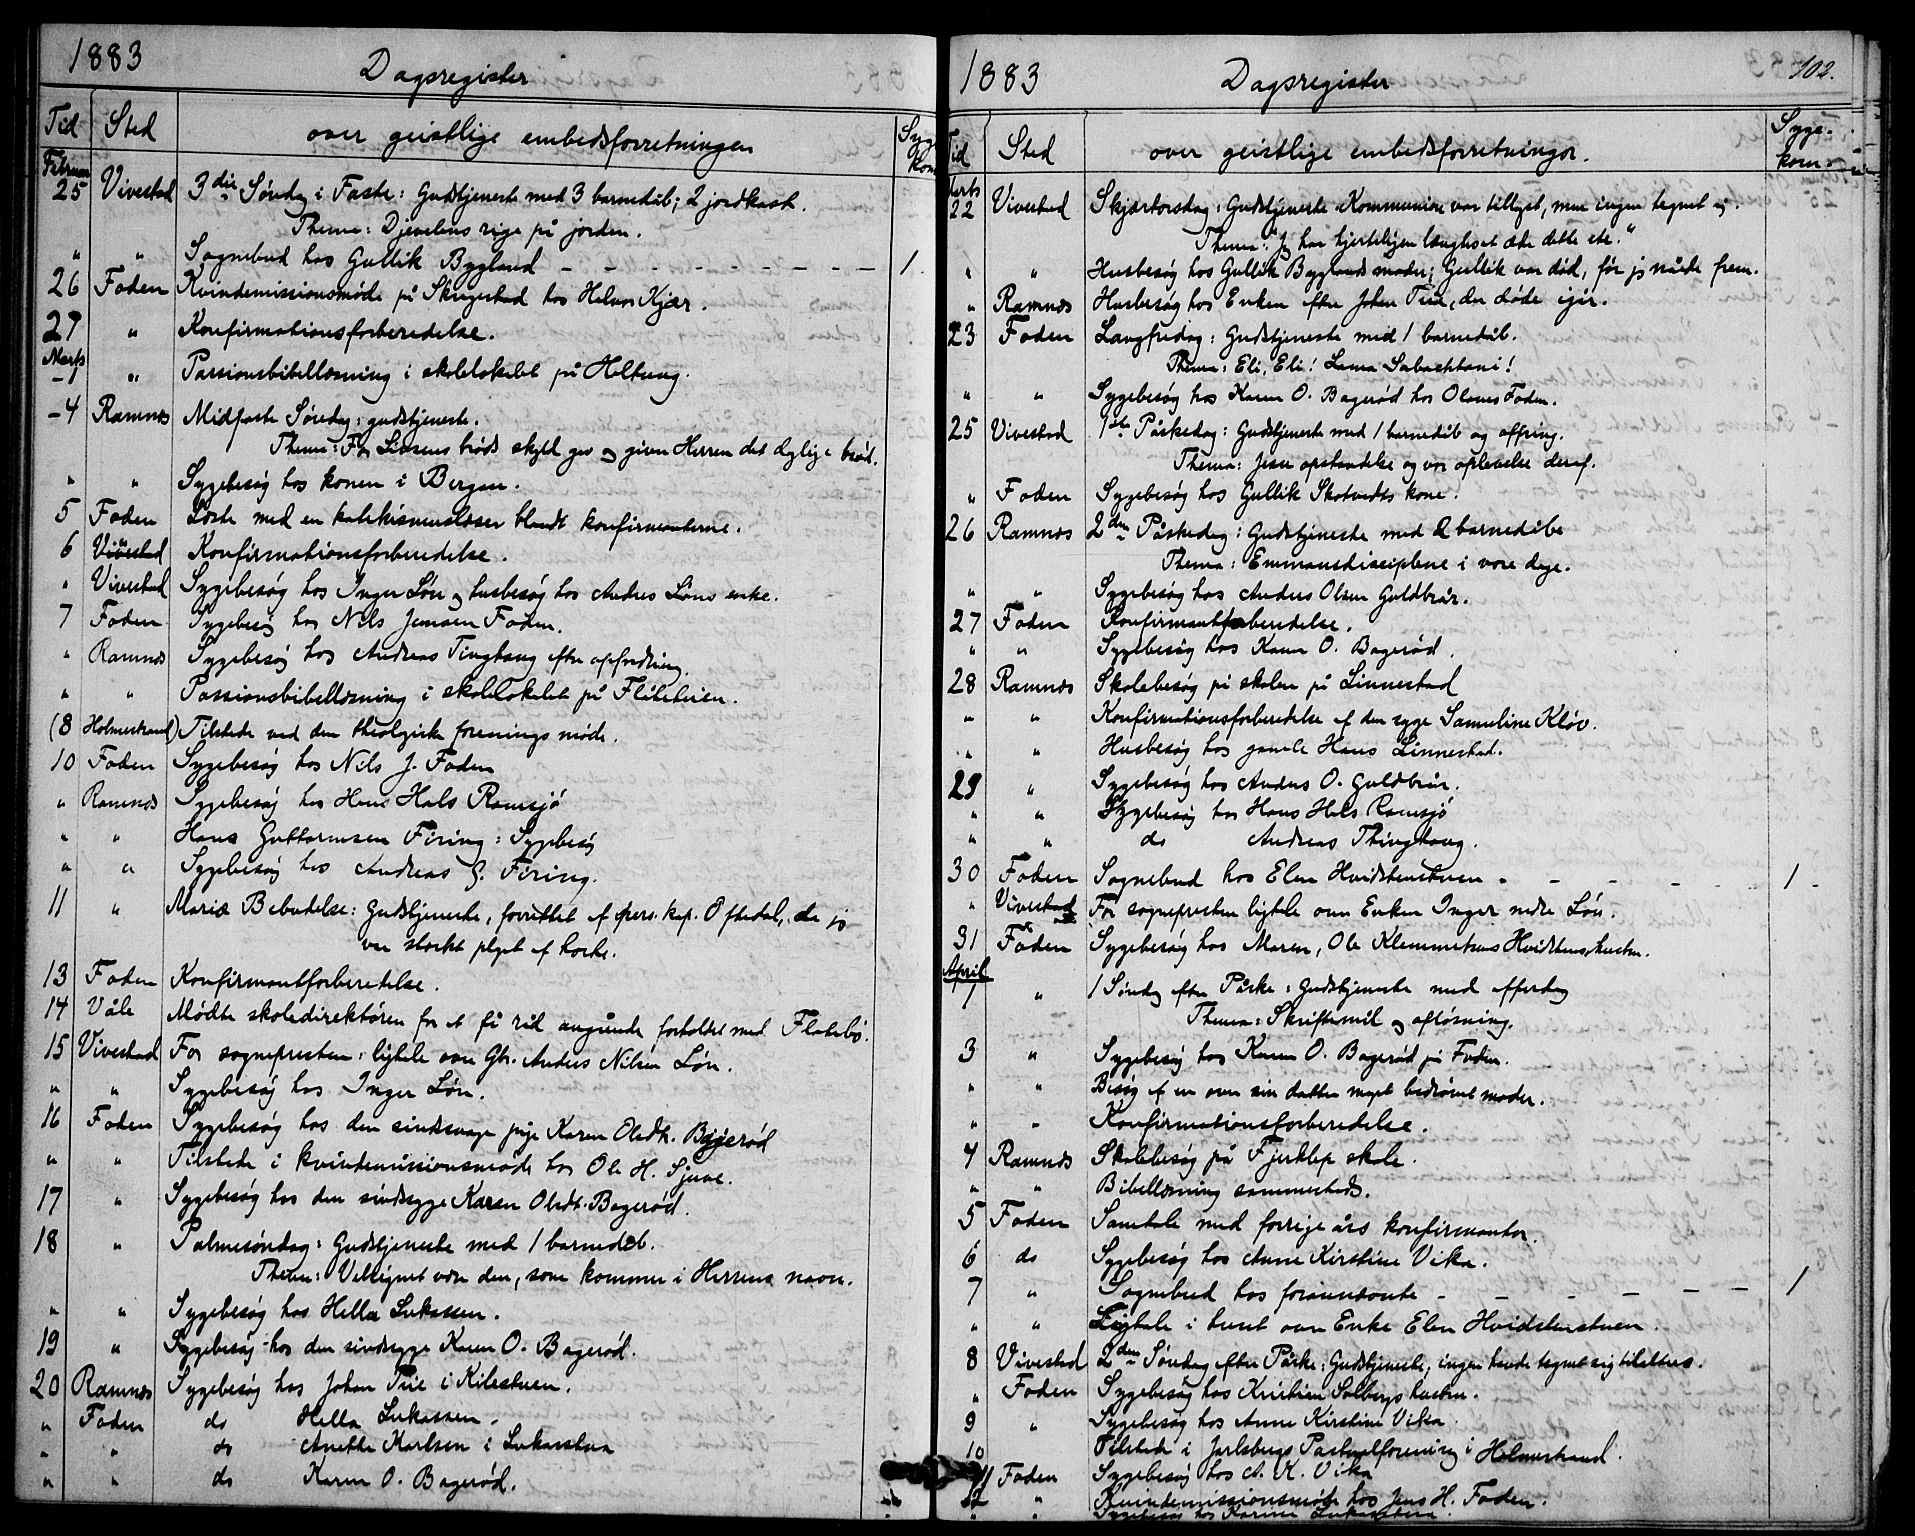 1883 Dagsregister
Tid Sted over geistlige embedsforretningen Syge kom
Februar
25 Vivestad 3die Søndag i Faste: Gudstjeneste med 3 barnedåb; 2 jordkast.
Thema: Djevelens rige på jorden.
" " Sognebud hos Gullik Bygland – – – – – – – – – 1.
26 Foden Kvindemissionsmøde på Skregestad hos Halvor Kjær.
27 " Konfirmationsforberedelse.
Marts
–1 " Passionsbibellæsning i skolelokalet på Heltung.
–4 Ramnæs Midfaste Søndag: gudstjeneste.
Thema: For Livsens brøds skyld gev og given Herren det daglige brød.
" " Sygebesøg hos konen i Bergan.
5 Foden Læste med en katekismuslæser blandt konfirmanterne.
6 " Konfirmationsforberedelse.
" Vivestad Sygebesøg hos Inger Løn og husbesøg hos Andres Løns enke.
7 Foden Sygebesøg hos Nils Jensen Foden.
" Ramnæs Sygebesøg hos Andreas Tinghaug efter opfordring
" " Passionsbibellæsning i skolelokalet på Flåteteien.
(8 Holmestrand) Tilstede ved den theologiske forenings møde.
10 Foden Sygebesøg hos Nils J. Foden
" Ramnæs Sygebesøg hos Hans Hals Ramsjø
" " Hans Guttormsen Firing: Sygebesøg
" " Sygebesøg hos Andreas G. Firing.
11 " Mariæ Bebudelse: Gudstjeneste, forrettet af pers. kap. Oftedal, da jeg
var stærkt plaget af hoste.
13 Foden Konfirmantforberedelse.
14 Våle Mødte skoledirektøren for at få råd angående forholdet med Flatebø.
15 Vivestad For sognepresten: ligtale over Gbr. Anders Nilsen Løn.
" " Sygebesøg hos Inger Løn.
16 Foden Sygebesøg hos den sindssvage pige Karen Olsdt. Bagerød
" " Tilstede i kvindemissionsmøde hos Ole H. Sjuve.
17 " Sygebesøg hos den sindssyge Karen Olsdt. Bagerød.
18 " Palmesøndag: Gudstjeneste med 1 barnedåb.
Thema: Velsignet være den, som kommer i Herrens navn.
" " Sygebesøg hos Hella Lukassen.
19 " Sygebesøg hos den sindssyge Karen O. Bagerød.
20 Ramnæs Sygebesøg hos Johan Trie i Kilestuen.
" Foden do Hella Lukassen.
" " do Anette Karlsen i Lukasstua
" " do Karen O. Bagerød.
1883 Dagsregister 102.
Tid Sted over geistlige embedsforretninger. Syge-kom.
Marts
22 Vivestad Skjærtorsdag: Gudstjeneste. Kommunion var tillyst, men ingen tegnet sig.
Thema: "Jeg har hjerteligen længtset æde dette etc."
" " Husbesøg hos Gullik Byglands moder; Gullik var død, før jeg nåede frem.
" Ramnæs Husbesøg hos Enken efter Johan Trie, der døde igår.
23 Foden Langfredag: Gudstjeneste med 1 barnedåb.
Thema: Eli, Eli! Lama Sabachtani!
" " Sygebesøg hos Karen O. Bagerød hos Olaves Foden.
25 Vivestad 1ste Påskedag: Gudstjeneste med 1 barnedåb og offring.
Thema: Jesu opstandelse og vor oplevelse deraf.
" Foden Sygebesøg hos Gullik Skotvedts kone.
26 Ramnæs 2den Påskedag: Gudstjeneste med 2 barnedåbe
Thema: Emmausdisciplene i vore dage.
" " Sygebesøg hos Anders Olsen Guldbrår.
27 Foden Konfirmantforberedelse.
" " Sygebesøg hos Karen O. Bagerød.
28 Ramnæs Skolebesøg på skolen på Linnestad
" " Konfirmationsforberedelse af den syge Samueline Kløv.
" " Husbesøg hos gamle Hans Linnestad.
29 " Sygebesøg hos Anders O. Guldbrår.
" " Sygebesøg hos Hans Hals Ramsjø
" " do Andreas Thinghaug.
30 Foden Sognebud hos Elen Hvidstenstuen – – – – – – 1 –
" Vivestad For sognepresten ligtale over Enken Inger nedre Løn.
31 Foden Sygebesøg hos Maren, Ole Klemmetsens Hvidstens hustru.
April
1 " 1 Søndag efter Påske: Gudstjeneste med offerdag
Thema: Skriftemål og afløsning.
3 " Sygebesøg hos Karen O. Bagerød på Foden.
" " Besøg af en over sin datter meget bedrøvet moder.
" " Konfirmationsforberedelse.
4 Ramnæs Skolebesøg på Fjerklep skole.
" " Bibellæsning sammesteds.
5 Foden Samtale med forrige års konfirmanter.
6 do Sygebesøg hos Anne Kirstine Vika.
7 " Sognebud hos forannævnte – – – – – – 1
" " Ligtale i huset over Enke Elen Hvidstenstuen.
8 Vivestad 2den Søndag efter Påske: Gudstjeneste; ingen havde tegnet sig til alters.
" Foden Sygebesøg hos Kristian Solbergs hustru.
9 " Sygebesøg hos Anne Kirstine Vika.
10 Tilstede i Jarlsbergs Pastoralforening i Holmestrand.
11 Foden Sygebesøg hos A. K. Vika
12 " Kvindemissionsmøde hos Jens H. Foden.
" " Sygebesøg hos Karine Lukasstua.